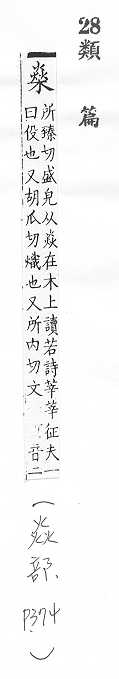 28類篇
燊
所臻切盛皃从焱在木上讀若詩莘莘征夫一
曰役也又胡瓜切熾也又所內切文 音二
(焱部 P374)